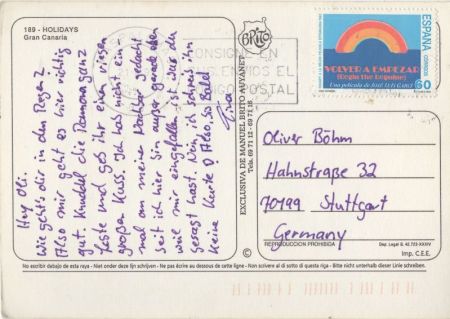 189 - HOLIDAYS
Gran Canaria
Hey Oli.
Wie geht's dir in den Regen?
Also mir geht es hier richtig
gut. Knuddel die Ramona ganz
feste und geb ihr einen riesen
großen Kuss. Ich hab nicht ein-
mal an meinen Nachbar gedacht
seit ich hier bin außer gerade eben
weil mir eingefallen ist was du
gesagt hast. Nein, ich schreib ihm
keine Karte! Also. So Bald
Tina
BRITO
EXCLUSIVA DE MANUEL BRITO AUYANET
Tels. 69 71 12 - 69 71 16
CONSIGNE EN
ENVIOS EL
CODIGO POSTAL
ESPAÑA
CORREOS
VOLVER A EMPEZAR
(Begin the Beguine)
Una película de José Luis Garci
60
Oliver Böhm
Hahnstraße 32
70199 Stuttgart
Germany
REPRODUCCION PROHIBIDA
Dep. Legal B. 42.723-XXXIV
©
Imp. C.E.E.
No escribir debajo de esta raya - Niet onder deze lijn schrijven - Ne pas écrire au dessous de cette ligne - Non scrivere al di sotto di questa riga - Bitte nicht unterhalb dieser Linie schreiben.